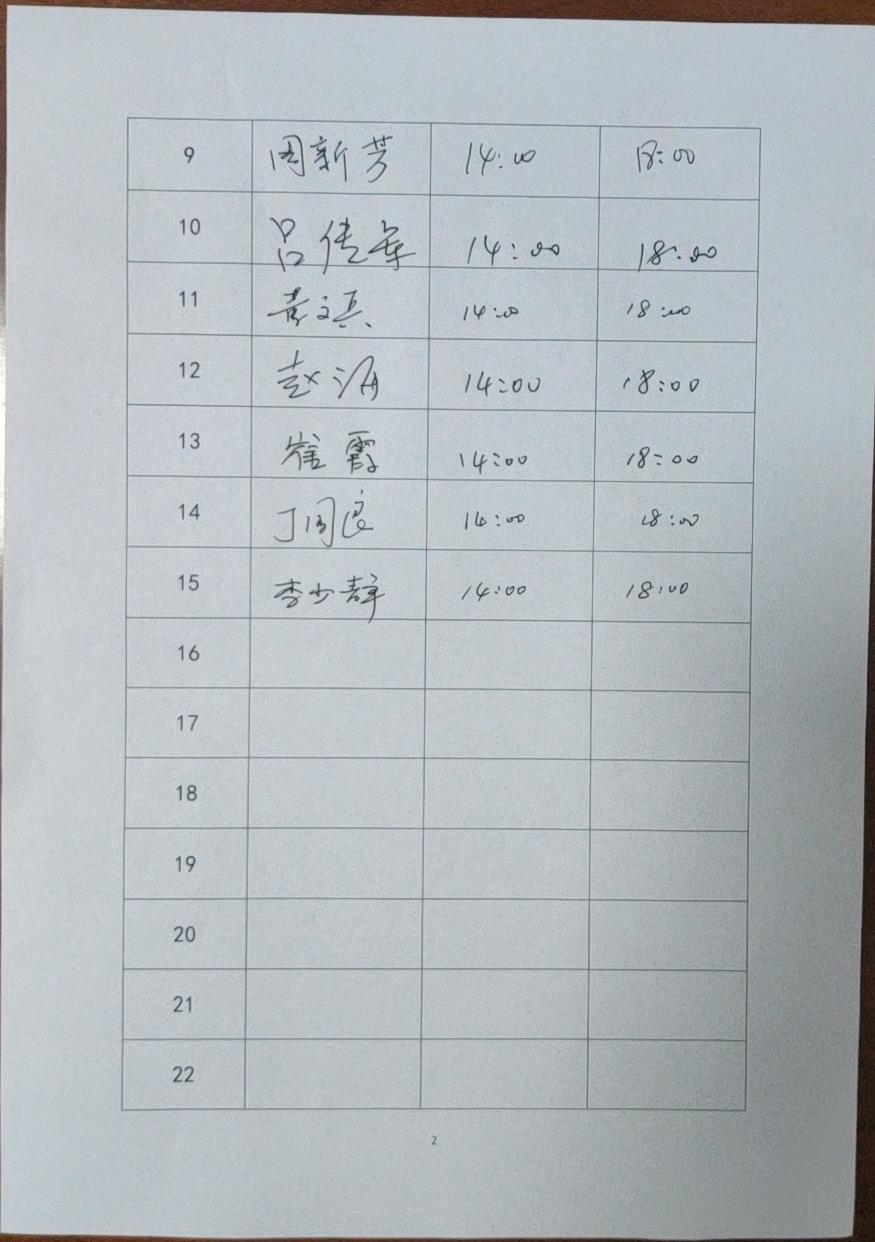 9 周新芳 14:00 18:00
10 吕传军 14:00 18:00
11 14:00 18:00
12 赵海 14:00 18:00
13 崔霞 14:00 18:00
14 丁国良 14:00 18:00
15 李少静 14:00 18:00
16
17
18
19
20
21
22
2